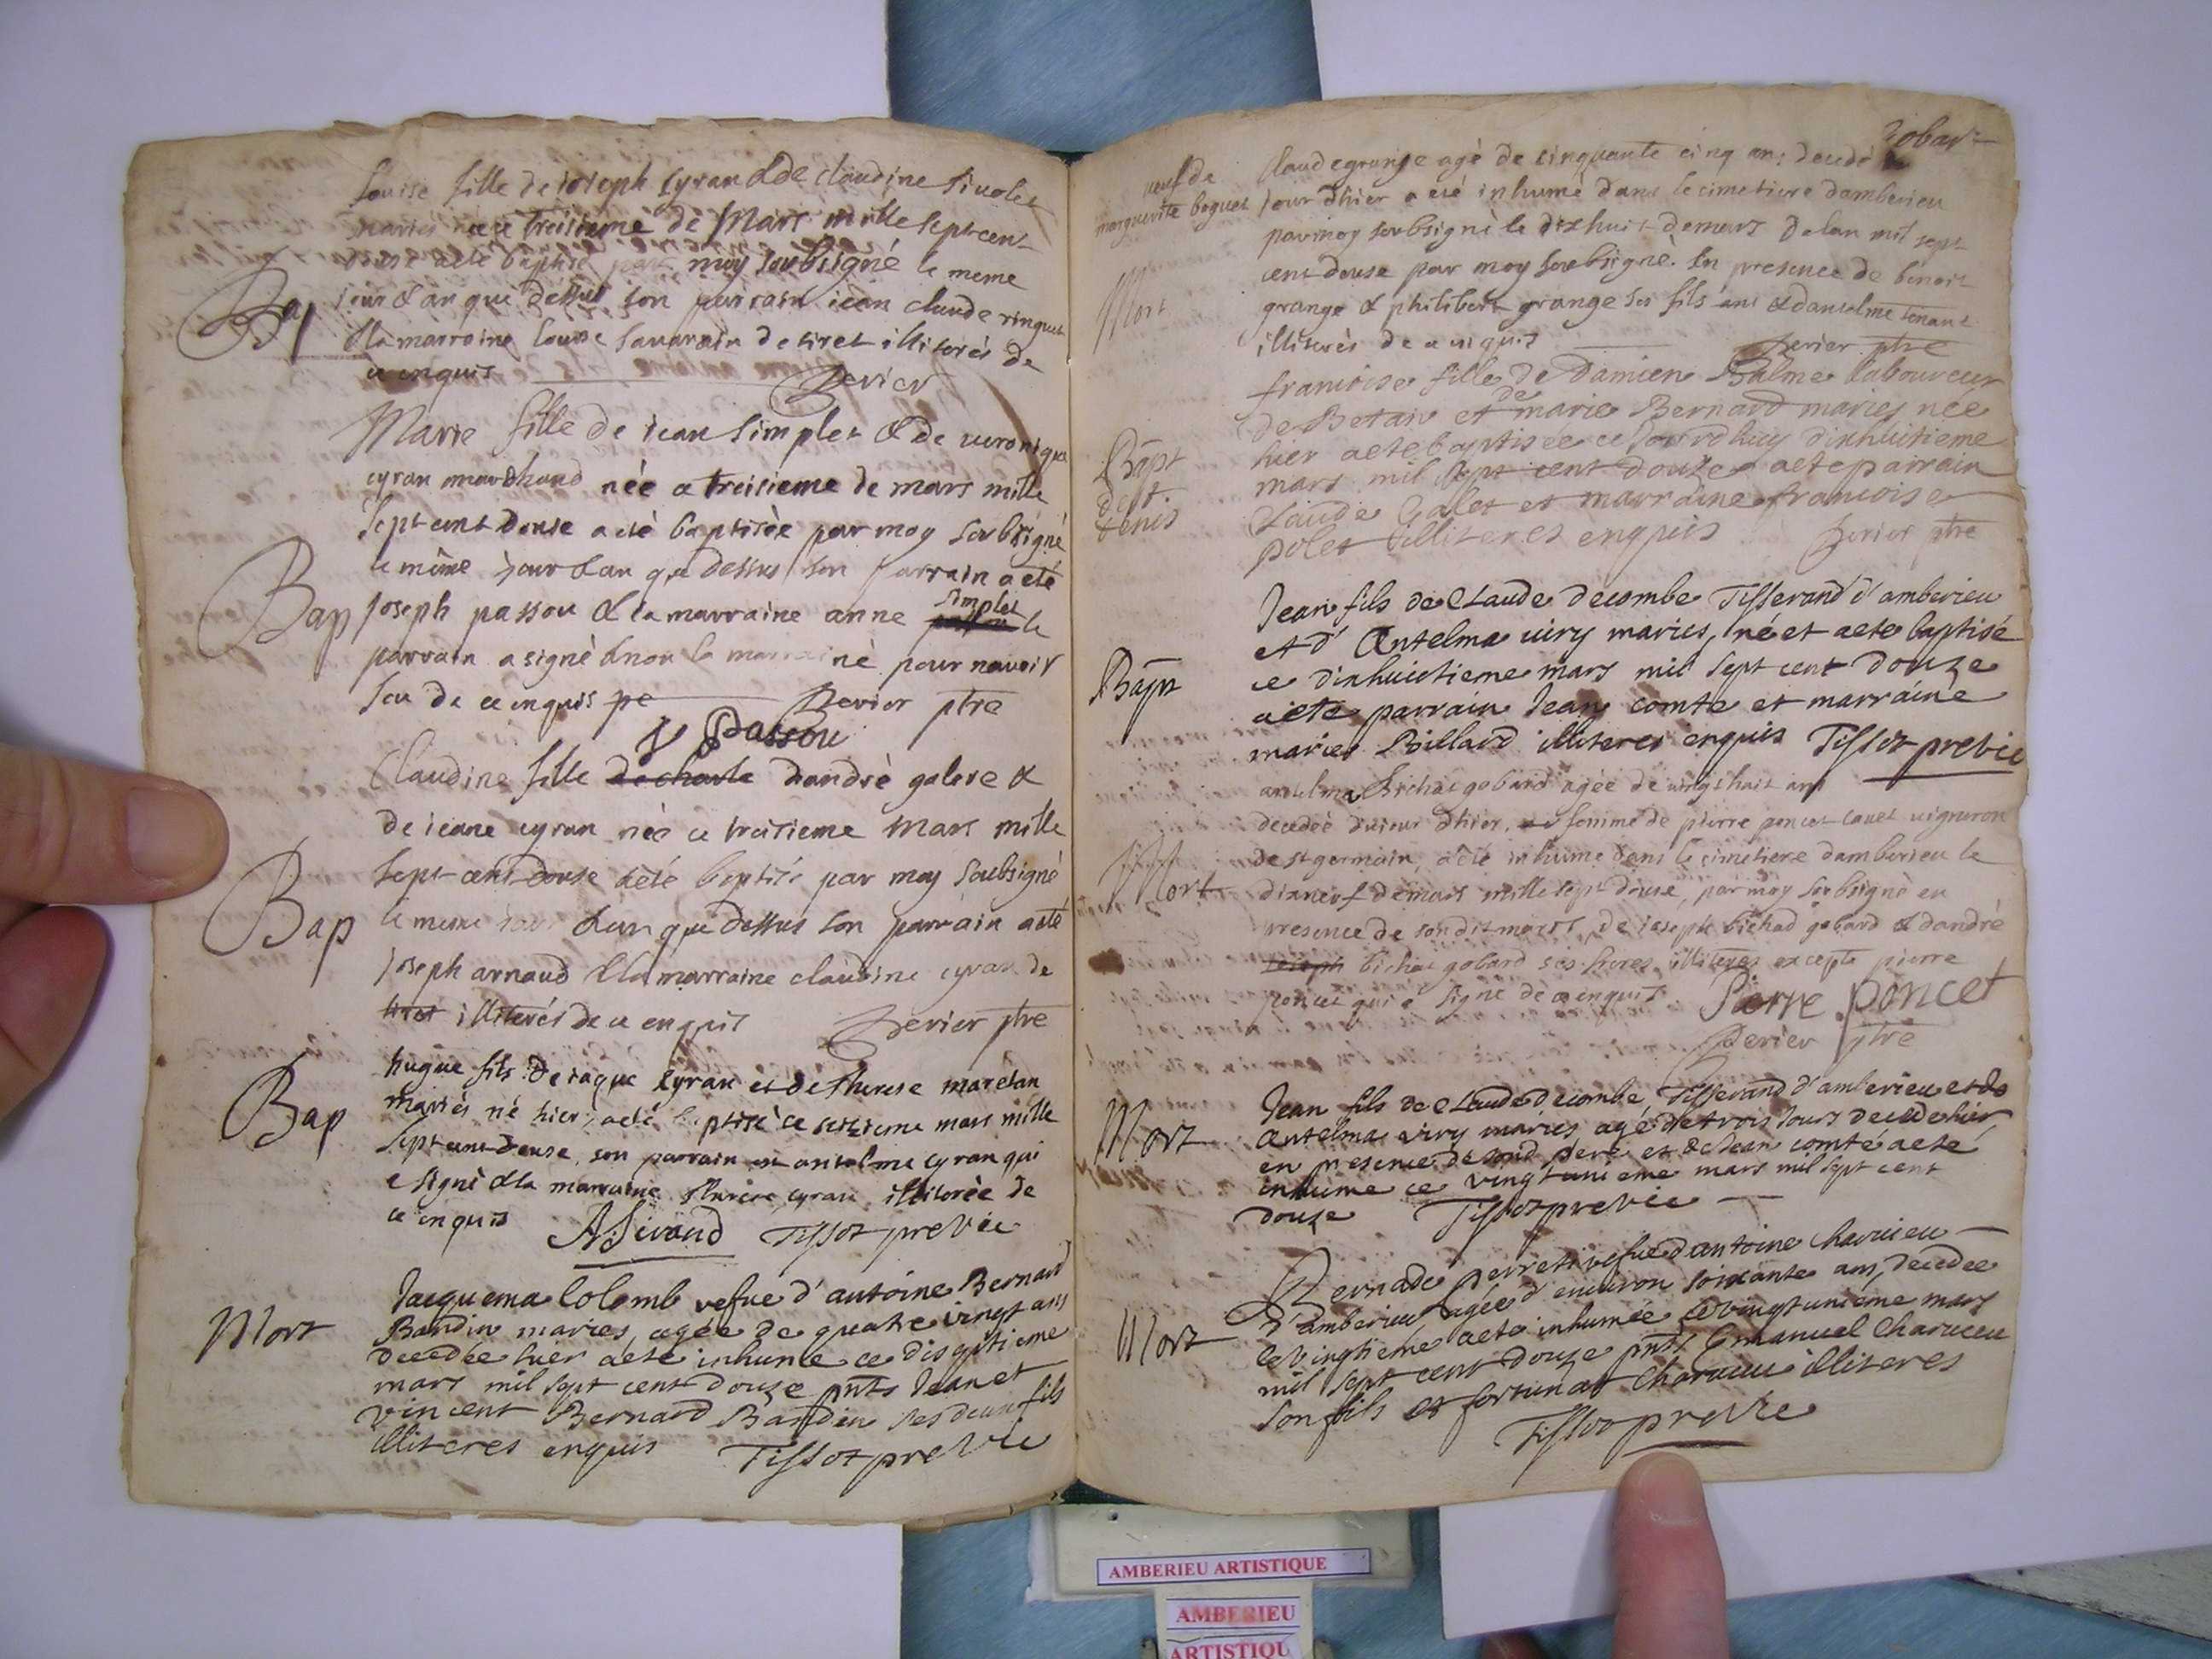 Louise fille de joseph cyran & de claudine sivolet
mariés née ce treisieme de Mars mille sept cent
douse a eté baptisé par moy soubsigné le meme
Bap
jour & an que dessus son parrain jean claude ringuet
& la marraine Louise savarain de tiret illiterés de
ce enquis Perier
Marie fille de jean simplet & de veronique
cyran marchand née ce treisieme de mars mille
sept cent douse a eté baptisée par moy soubsigné
le même jour & an que dessus son parrain a eté
Bap
joseph passou & la marraine anne simplet le
parrain a signé & non la marraine pour n'avoir
seu de ce enquis Perier ptre
J Passou
Claudine fille de charle d'andrè galere &
de jeane cyran née ce treisieme mars mille
sept cent douse a eté baptisée par moy soubsigné
Bap
le meme jour & an que dessus son parrain a eté
joseph arnaud & la marraine claudine cyran de
tiret illiterés de ce enquis Perier ptre
hugue fils de jaque cyran et de therese maretan
Bap
mariés né hier, a eté baptisé ce sesieme mars mille
sept cent douse, son parrain est anselme cyran qui
a signé & la marraine therese cyran illiterée de
ce enquis ASirand Tissot previc
Jacquema Colomb vefue d'antoine Bernard
Mort
Bandin maries, agée de quatre vingt ans
decedee hier a eté inhumé ce diseptieme
mars mil sept cent douze pnts Jean et
vincent Bernard Bandin ses deux fils
illiteres enquis Tissot previc
veuf de
marguerite boguet
Claude grange agé de cinquante cinq ans decedé
jour d'hier a eté inhumé dans le cimetiere damberieu
par moy soubsigné le dixhuit de mars de lan mil sept
Mort
cent douse par moy soubsigné. En presence de benoit
grange & philibert grange ses fils & danselme tenant
illiterés de ce enquis Perier ptre
francoise fille de Damien Balme laboureur
de Betan et de marie Bernard maries née
Bapt
de St.
denis
hier a eté baptisée ce jourdhuy dixhuitieme
mars mil sept cent douze a eté parrain
Claude Galet et marraine francoise
polet illiteres enquis Perier ptre
Jean fils de Claude decombe Tisserand d'amberieu
et d'Antelma viry maries, né et a eté baptisé
Bapt
ce dixhuictieme mars mil sept cent douze
a eté parrain Jean comte et marraine
marie Billard illiteres enquis Tissot previc
antelma bichat gobard agée de vingt huit ans
decedée du jour d'hier, femme de pierre poncet cavet vigneron
Mort
de st germain, a eté inhumé dans le cimetiere damberieu le
dixneuf de mars mille sept douse, par moy soubsigné en
presence de son dit marit, de joseph bichad gobard & dandré
joseph bichat gobard ses freres illiteres excepte pierre
poncet qui a signé de ce enquis Pierre poncet
Perier ptre
Jean fils de Claude decombe, Tisserand d'amberieu et de
Mort
Antelma viry mariés, agé de trois jours decedé hier
en presence de son d père et de Jean comte a eté
inhumé ce vingt unieme mars mil sept cent
douze Tissot previc
Bernade perret vefue d'antoine charvieu
Mort
d'amberieu, agée d'environ soixante ans, decedée
le vingtieme a eté inhumée ce vingt unieme mars
mil sept cent douze pnts Emanuel Charvieu
son fils et fortunat Charvieu illiteres
Tissot previc
AMBERIEU ARTISTIQUE
AMBERIEU
ARTISTIQU